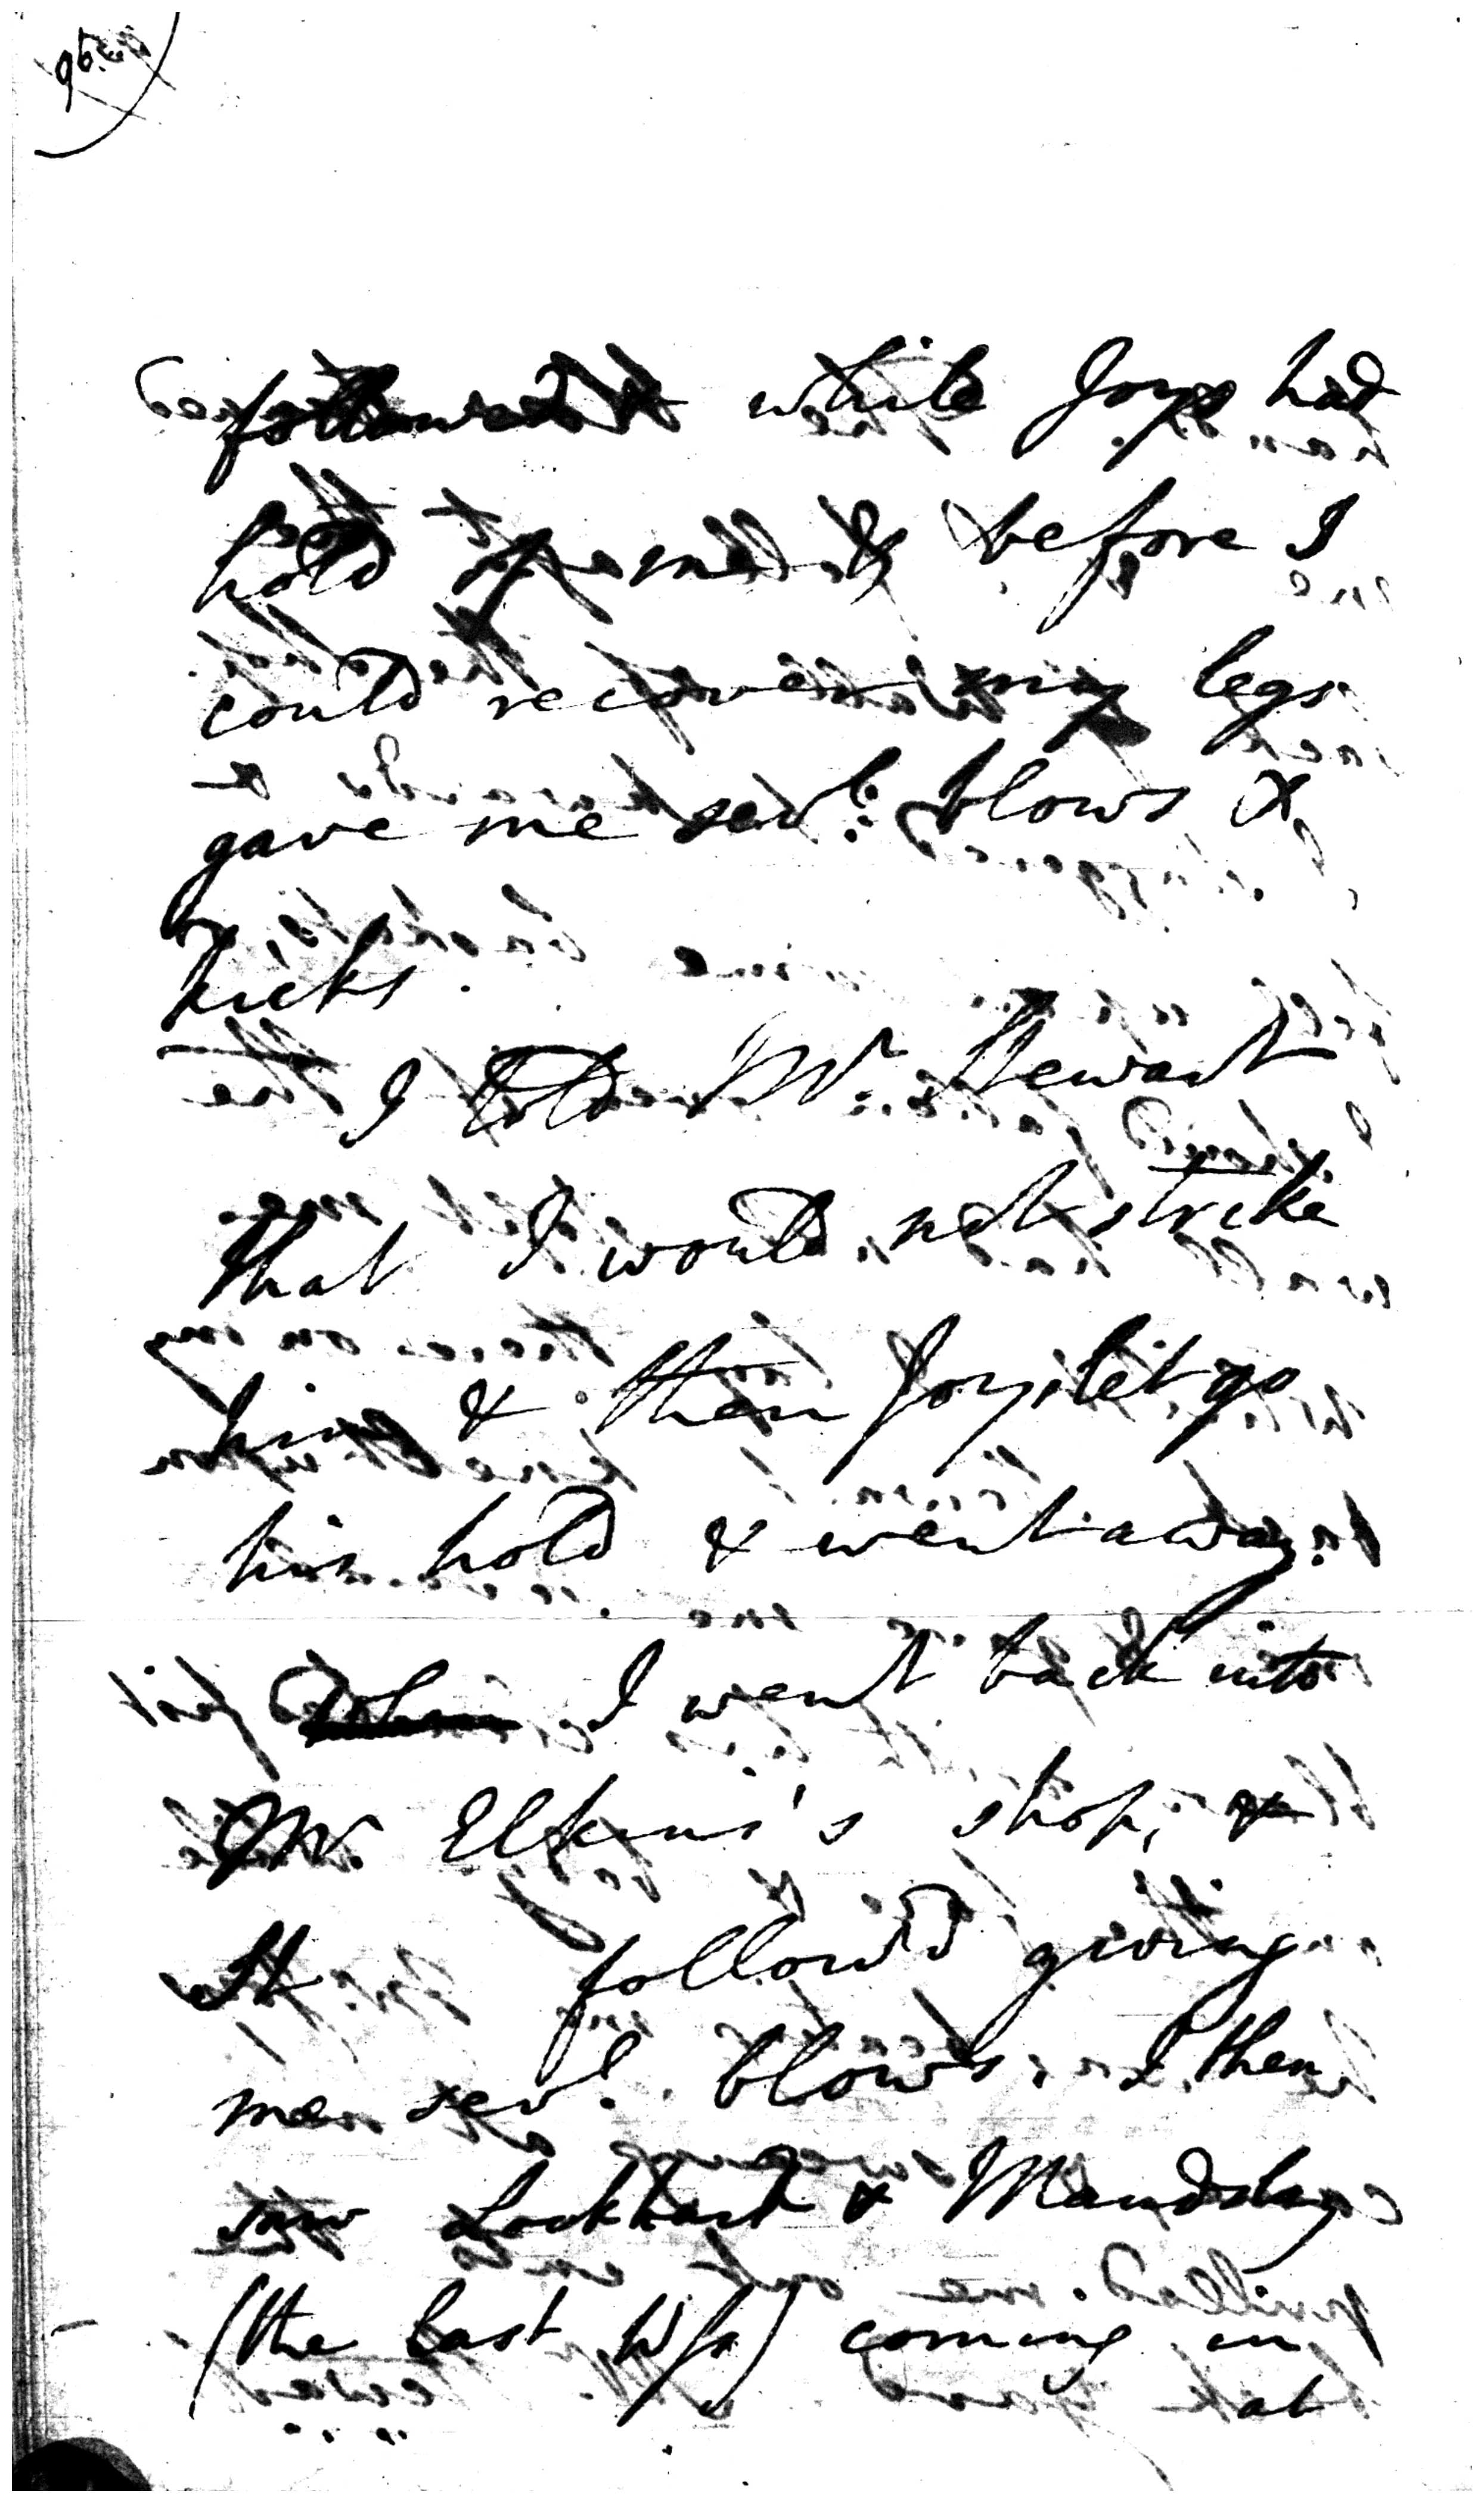 while Joys had
hold of me & before I
could recover my legs
gave me sevl. blows &
kicks.
I told Mr. Stewart
that I would not strike
him & then Joys let go
his hold & went away.
I went back into
Mr. Elkins's shop, &
St follow'd giving
me sevl. blows. I then
saw Lockhart & Maudslay
(the last Ws) coming in
at